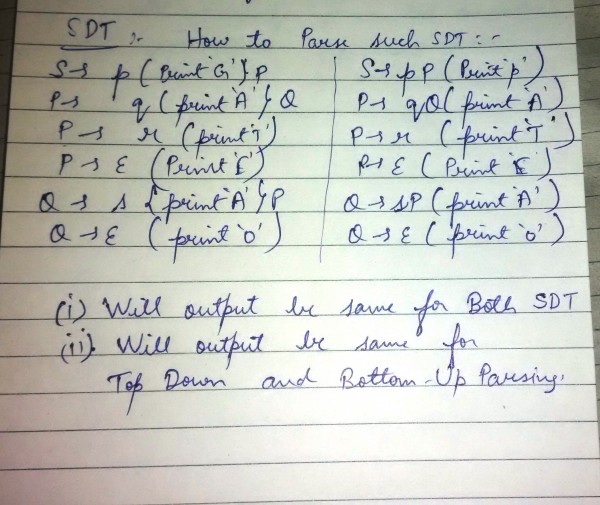 SDT :- How to Parse such SDT :-
S→ p (Print 'G'} P | S→ pP (Print 'p')
P→ q (print 'A'} Q | P→ qQ (print 'A')
P→ r (print 'T') | P→ r (print 'T')
P→ ε (Print 'E') | P→ ε (Print 'E')
Q→ s {print 'A'} P | Q→ sP (print 'A')
Q→ ε (print 'O') | Q→ ε (print 'O')
(i) Will output be same for Both SDT
(ii). Will output be same for
Top Down and Bottom-Up Parsing.